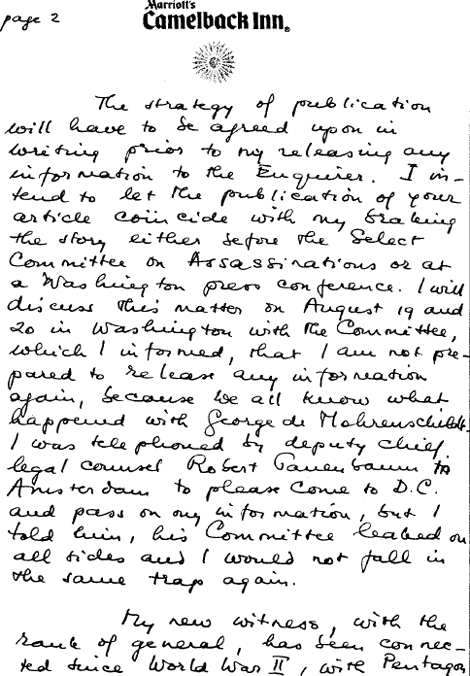 page 2
Marriott's
Camelback Inn®
The strategy of publication
will have to be agreed upon in
writing prior to my releasing any
information to the Enquirer. I in-
tend to let the publication of your
article coincide with my braking
the story either before the Select
Committee on Assassinations or at
a Washington press conference. I will
discuss this matter on August 19 and
20 in Washington with the Committee,
which I informed, that I am not pre-
pared to release any information
again, because we all know what
happened with George de Mohrenschildt.
I was telephoned by deputy chief
legal counsel Robert Tanenbaum to
Amsterdam to please come to D.C.
and pass on my information, but I
told him, his Committee leaked on
all sides and I would not fall in
the same trap again.
My new witness, with the
rank of general, has been connec-
ted since World War II, with Pentagon